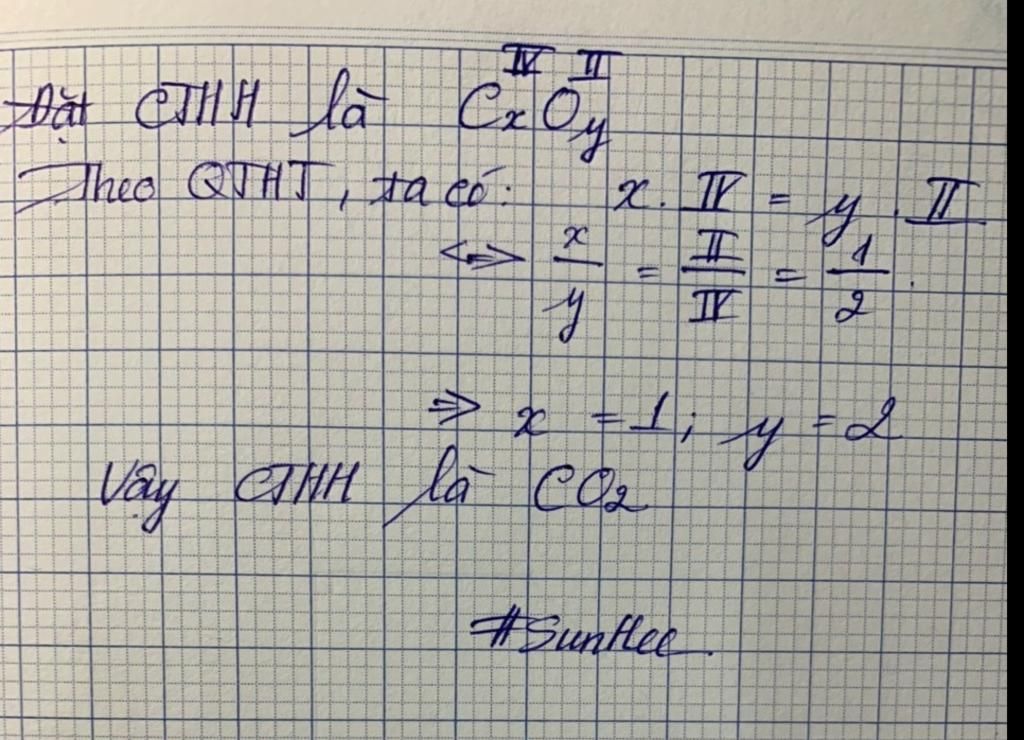 Đặt CTHH là CxOy IV II
Theo QTHT, ta có: x. IV = y. II
<=> x/y = II/IV = 1/2.
=> x = 1; y = 2
Vậy CTHH là CO2
#SunHee.